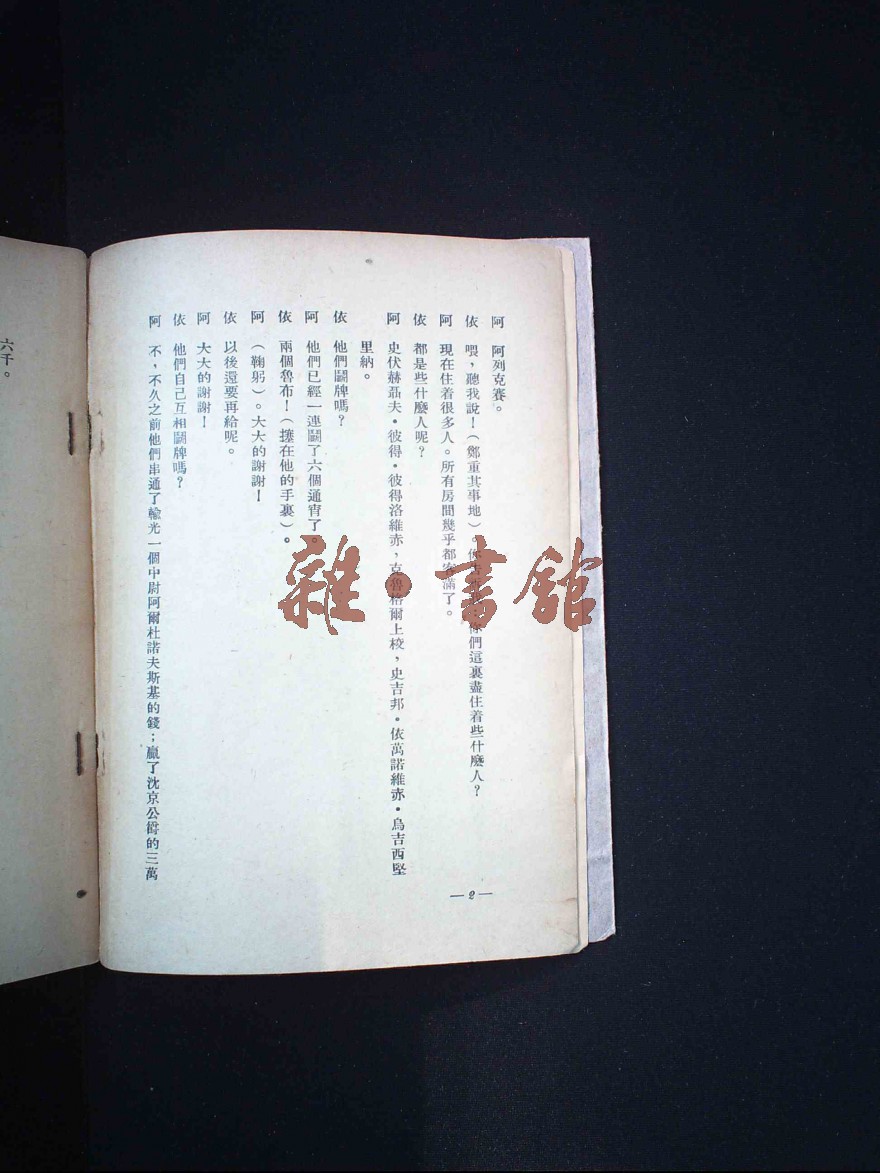 阿　阿列克賽。
依　喂，聽我說！（鄭重其事地）。你告訴我，你們這裏盡住着些什麼人？
阿　現在住着很多人。所有房間幾乎都客滿了。
依　都是些什麼人呢？
阿　史伏赫聶夫·彼得·彼得洛維赤，克魯格爾上校，史吉邦·依萬諾維赤·烏吉西堅
里納。
依　他們鬪牌嗎？
阿　他們已經一連鬪了六個通宵了。
依　兩個魯布！（擩在他的手裏）。
阿　（鞠躬）。大大的謝謝！
依　以後還要再給呢。
阿　大大的謝謝！
依　他們自己互相鬪牌嗎？
阿　不，不久之前他們串通了輸光一個中尉阿爾杜諾夫斯基的錢；贏了沈京公爵的三萬
—2—
六千。
雜·書館